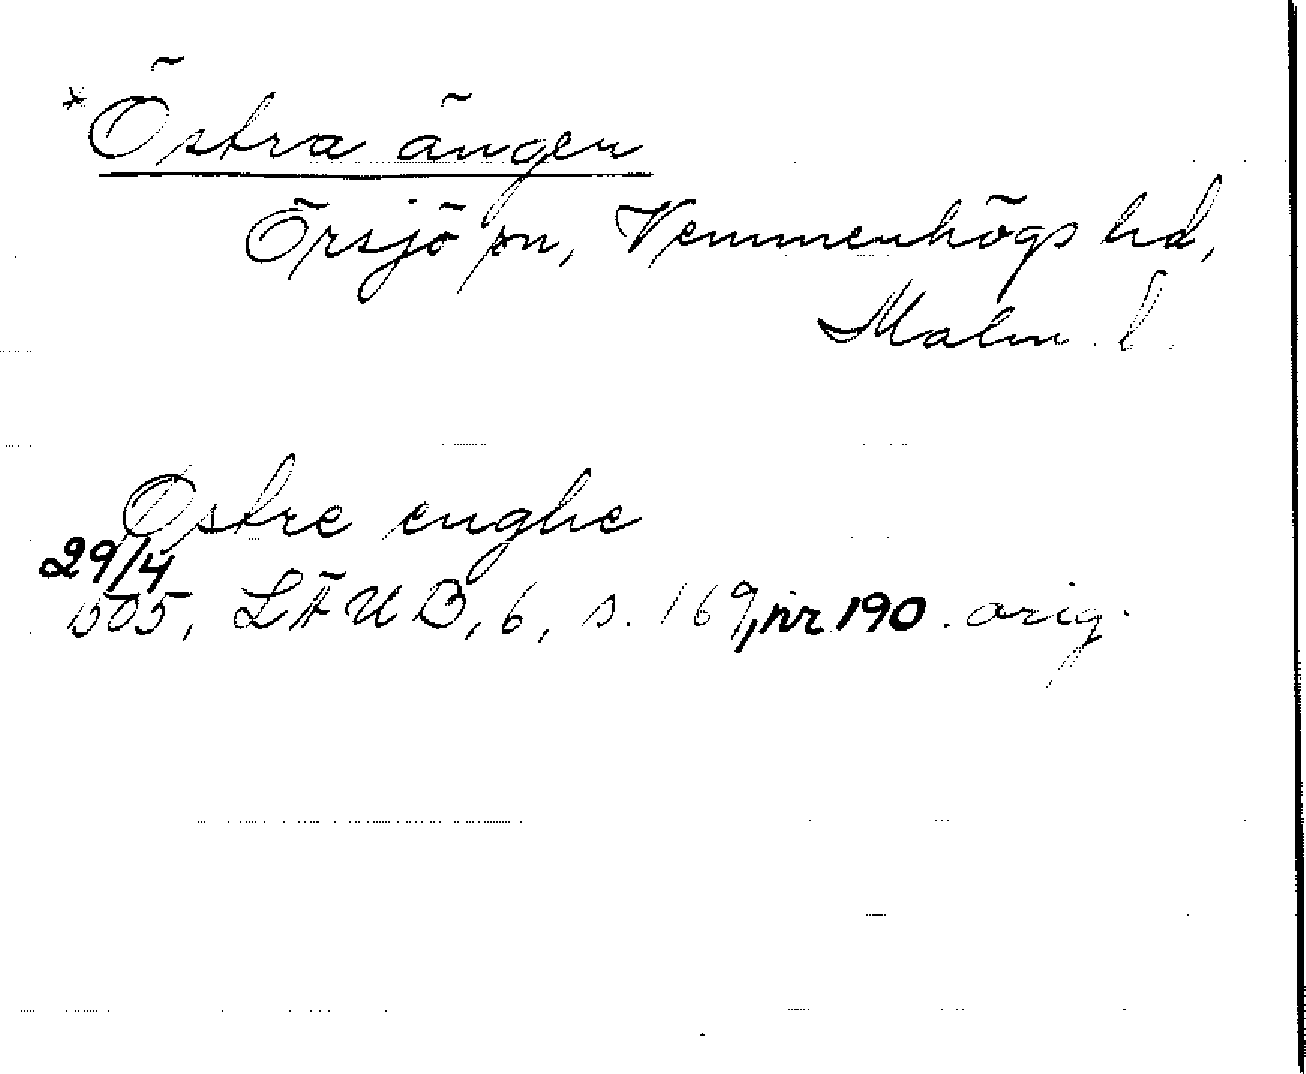 *Östra ängen
Örsjö sn, Vemmenhögs hd,
Malm. l.
Østre enghe
29/4
1505, LÄUB, 6, s. 169, nr 190. orig.